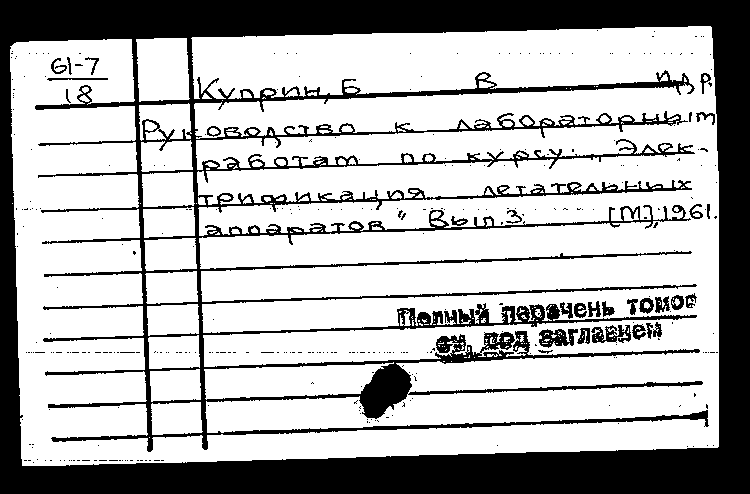 61-7
18
Куприн, Б В и др
Руководство к лабораторным
работам по курсу „Элек-
трификация летательных
аппаратов" Вып.3 [М],1961.
Полный перечень томов
см. под заглавием